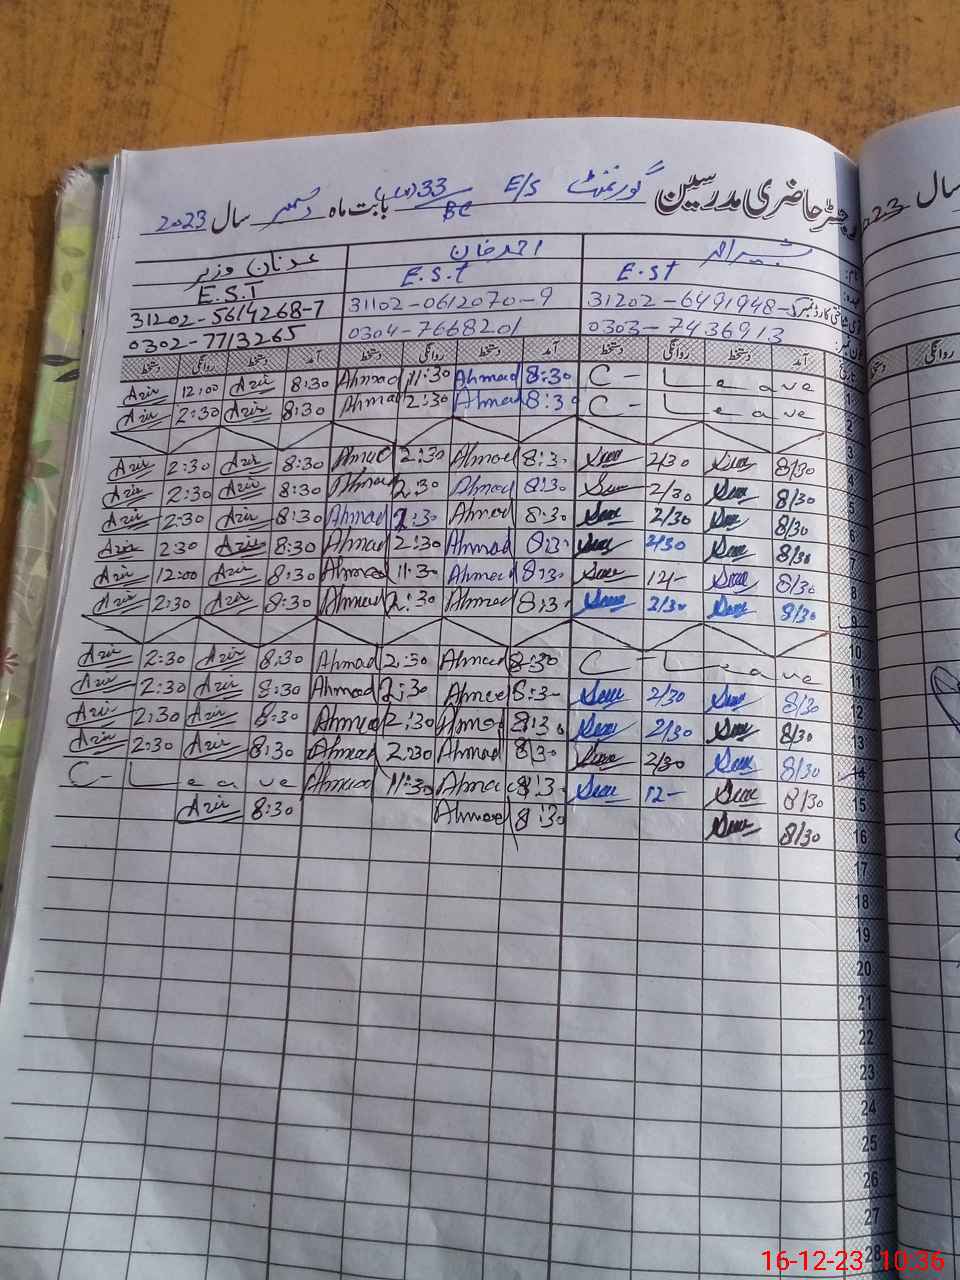 رجسٹر حاضری مدرسین گورنمنٹ E/S 33/BC بابت ماہ دسمبر سال 2023
احمد خان عدنان وزیر
E.ST E.S.t E.S.T
31202-6491948- 31102-0612070-9 31202-5614268-7
0303-7436913 0304-7668201 0302-7713265
آمد دستخط روانگی دستخط آمد دستخط روانگی دستخط آمد دستخط روانگی دستخط
1 C-Leave 8:30 Ahmad 11:30 Ahmad 8:30 Azir 12:00 Azir
2 C-Leave 8:30 Ahmad 2:30 Ahmad 8:30 Azir 2:30 Azir
3
4 8/30 2/30 8:30 Ahmad 2:30 Ahmad 8:30 Azir 2:30 Azir
5 8/30 2/30 8:30 Ahmad 2:30 Ahmad 8:30 Azir 2:30 Azir
6 8/30 2/30 8:30 Ahmad 2:30 Ahmad 8:30 Azir 2:30 Azir
7 8/30 2/30 8:30 Ahmad 2:30 Ahmad 8:30 Azir 2:30 Azir
8 8/30 12/- 8:30 Ahmad 11:30 Ahmad 8:30 Azir 12:00 Azir
9 8/30 2/30 8:30 Ahmad 2:30 Ahmad 8:30 Azir 2:30 Azir
10
11 C-Leave 8:30 Ahmad 2:30 Ahmad 8:30 Azir 2:30 Azir
12 8/30 2/30 8:30 Ahmad 2:30 Ahmad 8:30 Azir 2:30 Azir
13 8/30 2/30 8:30 Ahmad 2:30 Ahmad 8:30 Azir 2:30 Azir
14 8/30 2/30 8:30 Ahmad 2:30 Ahmad 8:30 Azir 2:30 Azir
15 8/30 12- 8:30 Ahmad 11:30 Ahmad C-Leave
16 8/30 8:30 Ahmad 8:30 Azir
17
18
19
20
21
22
23
24
25
26
27
28
سال
23
روانگی دستخط
16-12-23 10:36